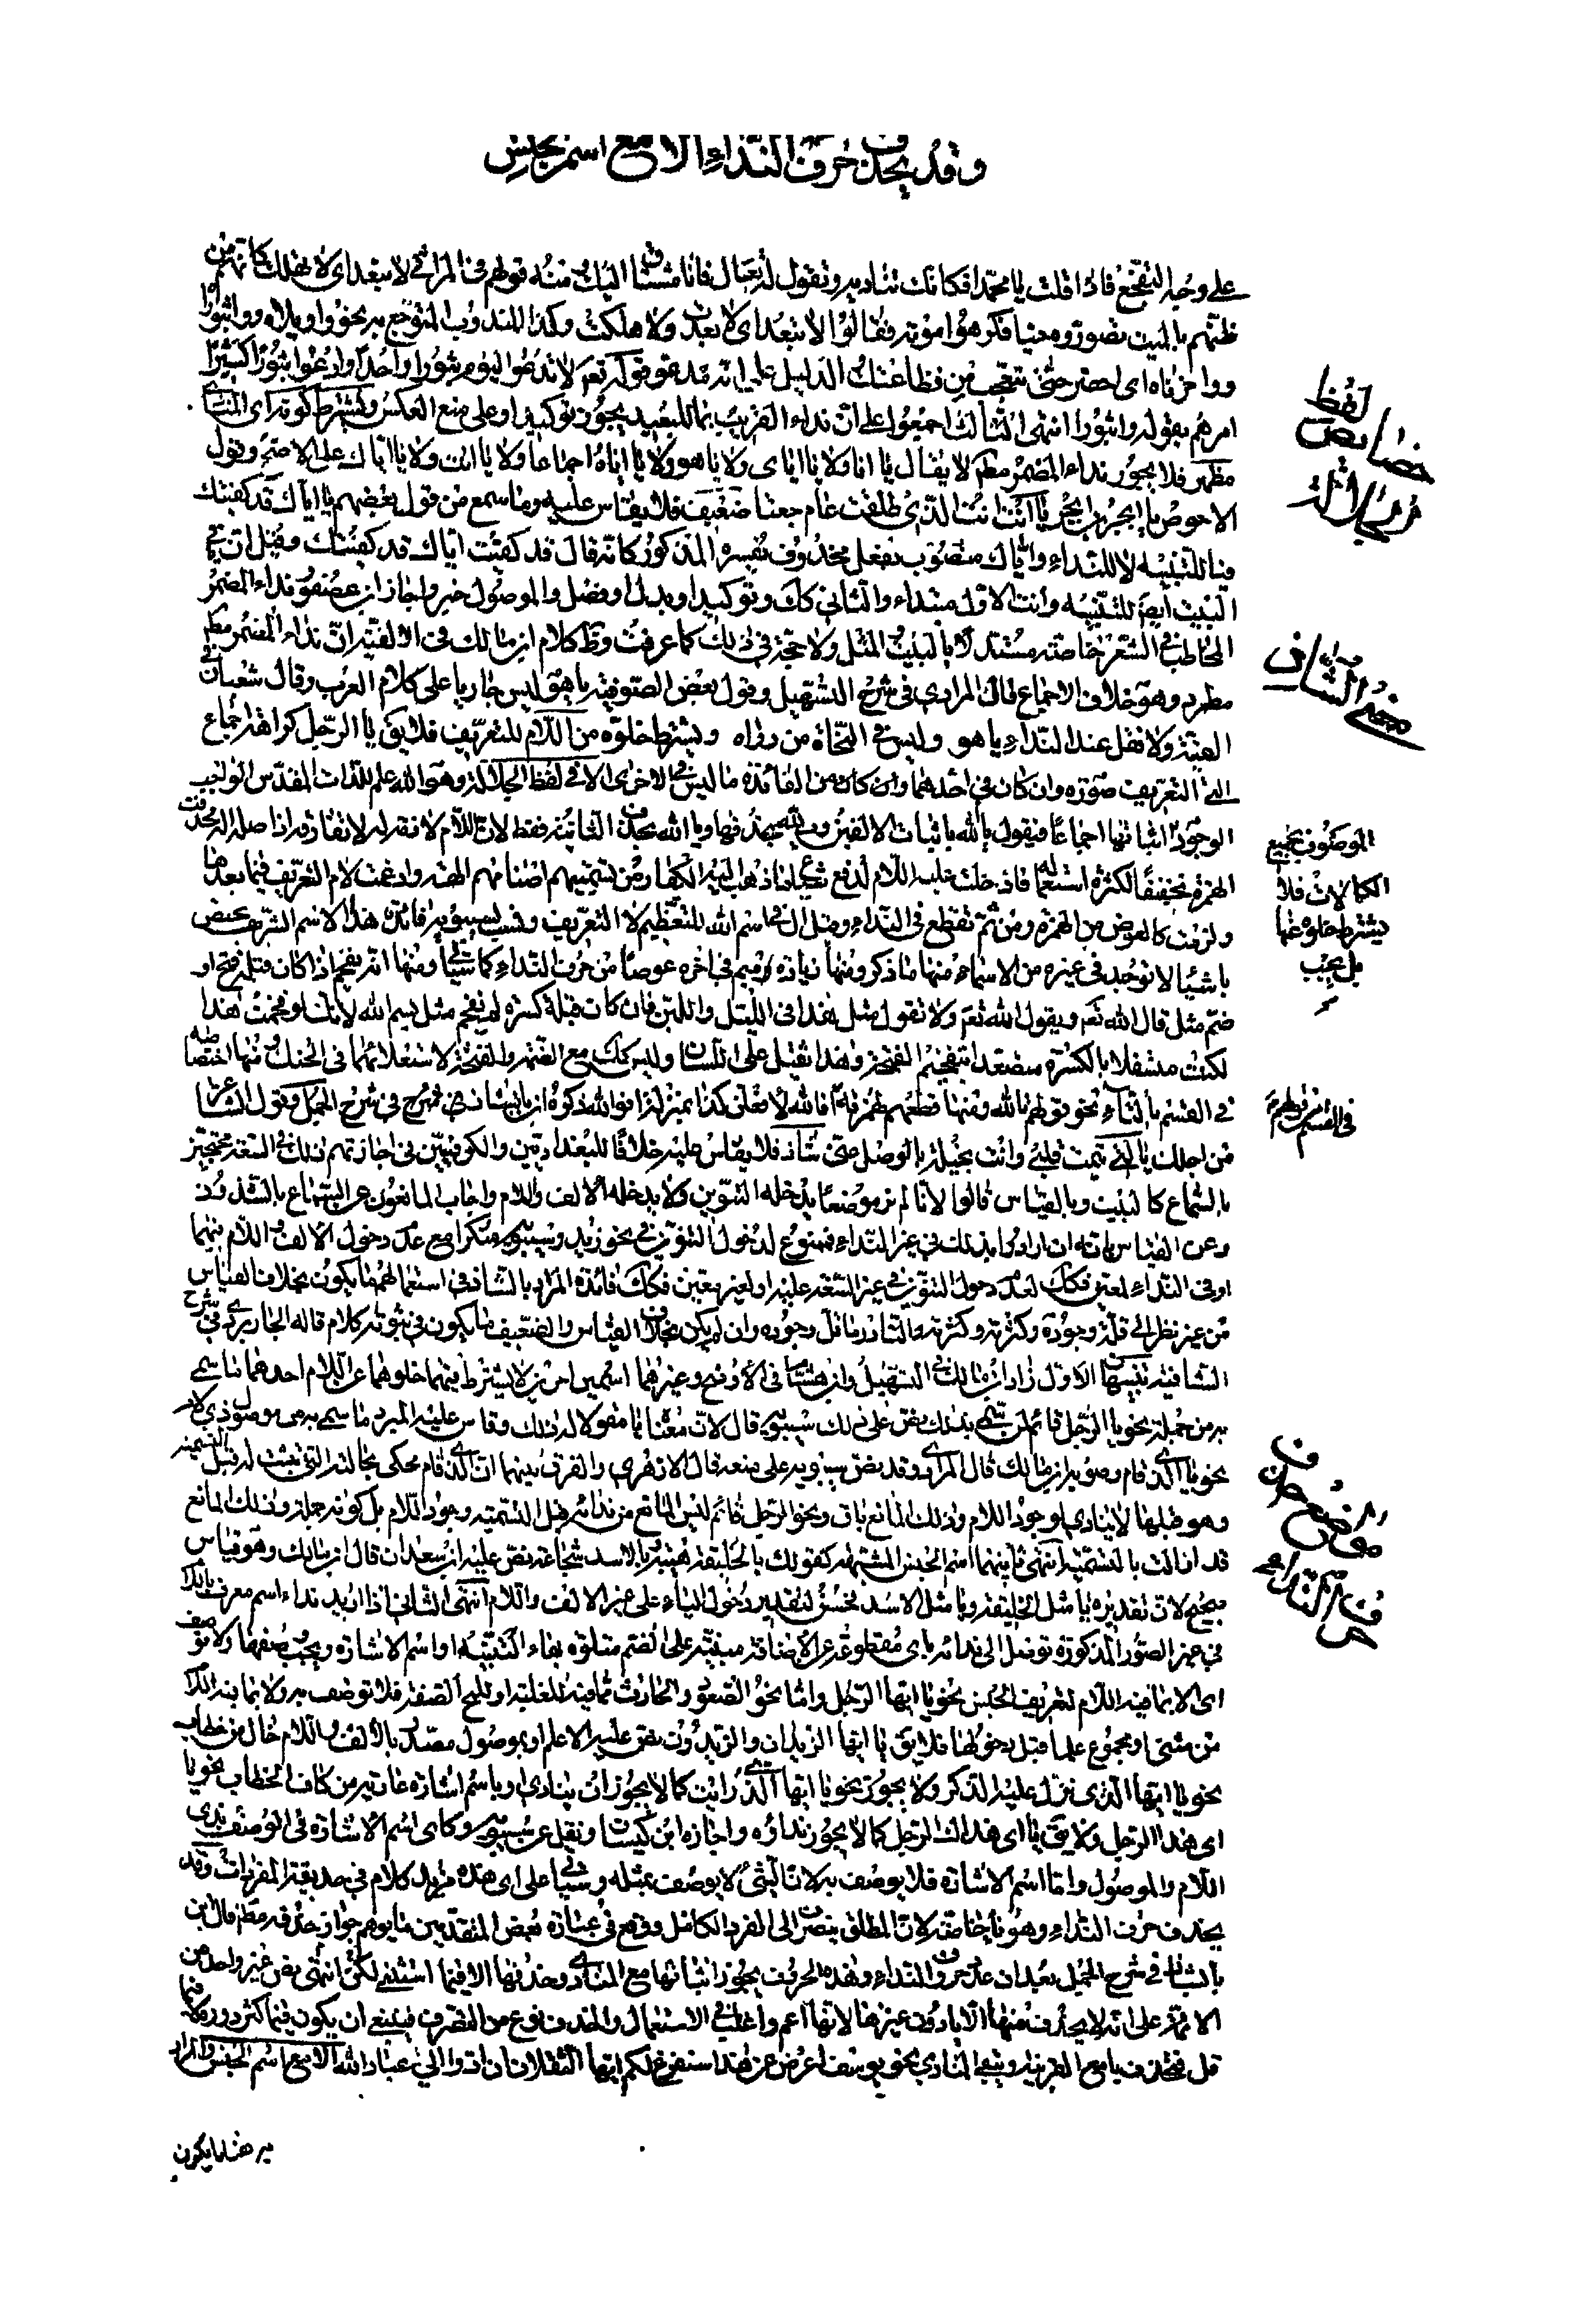 وقد يحذف حرف النداء الا مع اسم الجنس
على وجه التفجع فاذا قلت يا محمدا فكانك تناديه وتقول له تعال فانا مشتاق اليك ومنه قولهم في المراثي لا تبعد اي لا تهلك كانهم من
ظنهم بالميت تصوروه حيا فكرهوا موته فقالوا لا تبعد اي لا بعدت ولا هلكت وكذا المندوب المتوجع به نحو واويلاه وواثبورا
وواحزناه اي احضر حتى نتعجب من فظاعتك الدليل على انه مدعو قوله تعم لا تدعوا اليوم ثبورا واحدا وادعوا ثبورا كثيرا
امرهم بقوله واثبورا انتهى الثالث اجمعوا على ان نداء القريب بما للبعيد يجوز توكيدا وعلى منع العكس ويشترط كونه اي المنادى
مظهر فلا يجوز نداء المضمر مطم لا يقال يا انا ولا يا اياي ولا يا هو ولا يا اياه اجماعا ولا يا انت ولا يا اياك على الاصح وقول
الاحوص يا ابجر بن ابجر يا انت انت الذي طلقت عام جعنا ضعيف فلا يقاس عليه وما سمع من قول بعضهم يا اياك قد كفيتك
فيا للتنبيه لا للنداء واياك منصوب بفعل محذوف يفسره المذكور كانه قال قد كفيت اياك قد كفيتك وقيل ان يا في
البيت ايضا للتنبيه وانت الاول مبتداء والثاني كك وتوكيد او بدل او فصل والموصول خبر واجاز ابن عصفور نداء المضمر
المخاطب في الشعر خاصة مستدلا بالبيت والمثل ولا حجة في ذلك كما عرفت وظ كلام ابن مالك في الالفية ان نداء المضمر مطم
مطرد وهو خلاف الاجماع قال المرادي في شرح التسهيل وقول بعض الصوفية يا هو ليس جاريا على كلام العرب وقال شعبان في
الفيته ولا تقل عند النداء يا هو وليس في النحاة من رواه ويشترط خلوه من اللام للتعريف فلا يق يا الرجل كراهة اجتماع
التي التعريف صورة وان كان في احدهما من الفائدة ما ليس في الاخرى الا في لفظ الجلالة وهو الله علم للذات المقدس الواجب
الوجود اثباتها اجماعا فيقول يا الله باثبات الالفين ويلله بحذفها ويا الله بحذف الثانية فقط لان اللام لا تفارقه
ولزمت كالعوض من الهمزة ومن ثم تقطع في النداء وقيل ال في اسم الله للتعظيم لا للتعريف ونسب لسيبويه فائدة هذا الاسم الشريف يختص
باشياء لا توجد في غيره من الاسماء منها ما ذكر ومنها زيادة ميم في اخره عوضا من حرف النداء كما سياتي ومنها انه يفخم اذا كان قبله فتح او
ضم مثل قال الله تعم ويقول الله تعم ولا تقول مثل هذا في الليل واللبن فان كانت قبله كسرة لم يفخم مثل بسم الله لانك لو فخمت هذا
لكنت متسفلا بالكسرة متصعدا بتفخيم الفتحة وهذا يثقل على اللسان وليس كك مع الضم والفتحة لاستعلائهما في الحنك ومنها اختصاصه
في القسم بالتاء نحو قولهم تالله ومنها قطعهم همزته
من اجلك يا التي تيمت قلبي وانت بخيلة بالوصل عني شاذ فلا يقاس عليه خلافا للبغداديين والكوفيين في اجازتهم ذلك في السعة محتجين
بالسماع كالبيت وبالقياس قالوا لانا لم نر موضعا يدخله التنوين ولا يدخله الالف واللام واجاب المانعون عن السماع بالشذوذ
وعن القياس بانه ان ارادوا بذلك في غير النداء فممنوع لدخول التنوين في نحو زيد وسيبويه منكرا مع عدم دخول الالف واللام فيهما
من غير نظر الى قلة وجوده وكثرته والنادر ما قل وجوده وان لم يكن بخلاف القياس والضعيف ما يكون في ثبوته كلام قاله الجاربردي في شرح
الشافية تنبيهان الاول زاد ابن مالك في التسهيل وابن هشام في الاوضح وغيرهما اسمين اخرين لا يشترط فيهما خلوهما عن اللام احدهما ما سمي
به من جملة نحو يا الرجل قائم لمن سمي بذلك نص على ذلك سيبويه قال لان معناه يا مقولا له ذلك وقاس عليه المبرد ما سمي به من موصول ذي لام
نحو يا الذي قام وصوبه ابن مالك قال المرادي وقد نص سيبويه على منعه قال الازهري والفرق بينهما ان الذي قام محكي بحالته التي تثبت له قبل التسمية
وهو قبلها لا ينادى لوجود اللام وذلك المانع باق ونحو الرجل قائم ليس المانع من ندائه قبل التسمية وجود اللام بل كونه جملة وذلك المانع
قد زالت بالتسمية انتهى ثانيهما اسم الجنس المشبه به كقولك يا الخليفة هيبة ويا الاسد شجاعة نص عليه ابن سعدان قال ابن مالك وهو قياس
صحيح لان تقديره يا مثل الخليفة ويا مثل الاسد فحسن لتقدير دخول الياء على غير الالف واللام انتهى الثاني اذا اريد نداء اسم معرف باللام
في غير الصور المذكورة توصل الى ندائه باي مقطوعة عن الاضافة مبنية على الضم متلوة بهاء التنبيه او اسم الاشارة ويجب وصفهما ولا توصف
اي الا بما فيه اللام لتعريف الجنس نحو يا ايها الرجل واما نحو الصعق والحارث مما فيه للغلبة او للمح الصفة فلا توصف به ولا بما فيه اللام
من مثنى او مجموع علما قبل دخولها فلا يق يا ايها الزيدان والزيدون نص عليه الاعلم او بموصول مصدر بالالف واللام خال من خطاب
نحو يا ايها الذي نزل عليه الذكر ولا يجوز نحو يا ايها الذي رايت كما لا يجوز ان ينادى او باسم اشارة عارية من كاف الخطاب نحو يا
اي هذا الرجل ولا يق يا اي هذاك الرجل كما لا يجوز نداؤه واجازه ابن كيسان ونقل عن سيبويه وكاي اسم الاشارة في الوصف بذي
اللام والموصول واما اسم الاشارة فلا يوصف به لان الشيء لا يوصف بمثله وسياتي على اي هذه مزيد كلام في حديقة المفردات وقد
يحذف حرف النداء وهو يا خاصة لان المطلق ينصرف الى الفرد الكامل ووقع في عبارة بعض المتقدمين ما يوهم جواز حذفه مطم قال ابن
بابشاذ في شرح الجمل بعد ان عد حروف النداء وهذه الحروف يجوز اثباتها مع المنادى وحذفها الا فيما استثني لكن انتهى نص غير واحد من
الائمة على انه لا يحذف منها الا يا دون غيرها لانها اعم واغلب في الاستعمال والحذف نوع من التصرف فينبغي ان يكون فيما كثر دوره لا فيما
قل فتحذف يا مع القرينة ويبقى المنادى نحو يوسف اعرض عن هذا سنفرغ لكم ايها الثقلان ان ادوا الي عباد الله الا مع اسم الجنس والمراد
به هنا ما يكون
خصائص لفظ
الجلالة
معنى الشاذ
الموصوف بجميع
الكمالات فلا
يشترط خلوه عنها
بل يجب